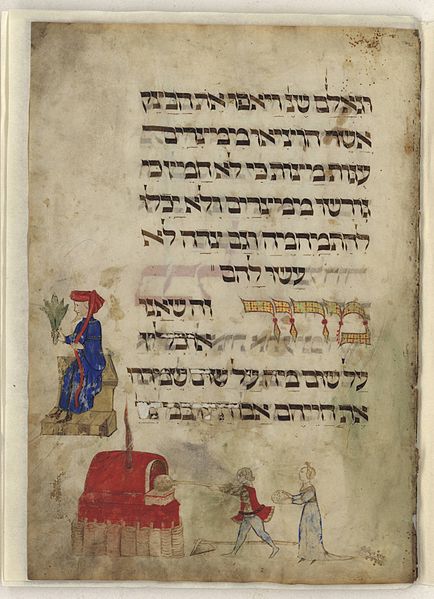 וגאלם שנ ויאפו את הבצק
אשר הוציאו ממצרים
עגות מצות כי לא חמץ כי
גורשו ממצרים ולא יכלו
להתמהמה וגם צדה לא
עשו להם
מרור זה שאנו
אוכלין
על שום מה על שום שמררו
את חייהם